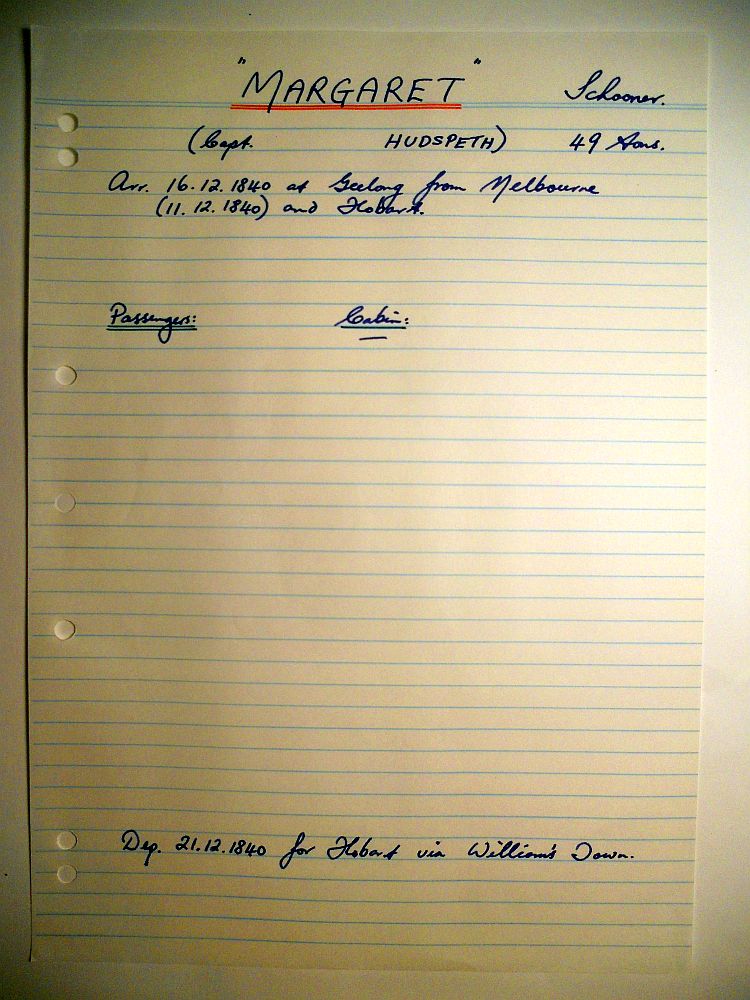 "MARGARET" Schooner.
(Capt. HUDSPETH) 49 tons.
Arr. 16.12.1840 at Geelong from Melbourne
(11.12.1840) and Hobart.
Passengers: Cabin:
—
Dep. 21.12.1840 for Hobart via William's Town.